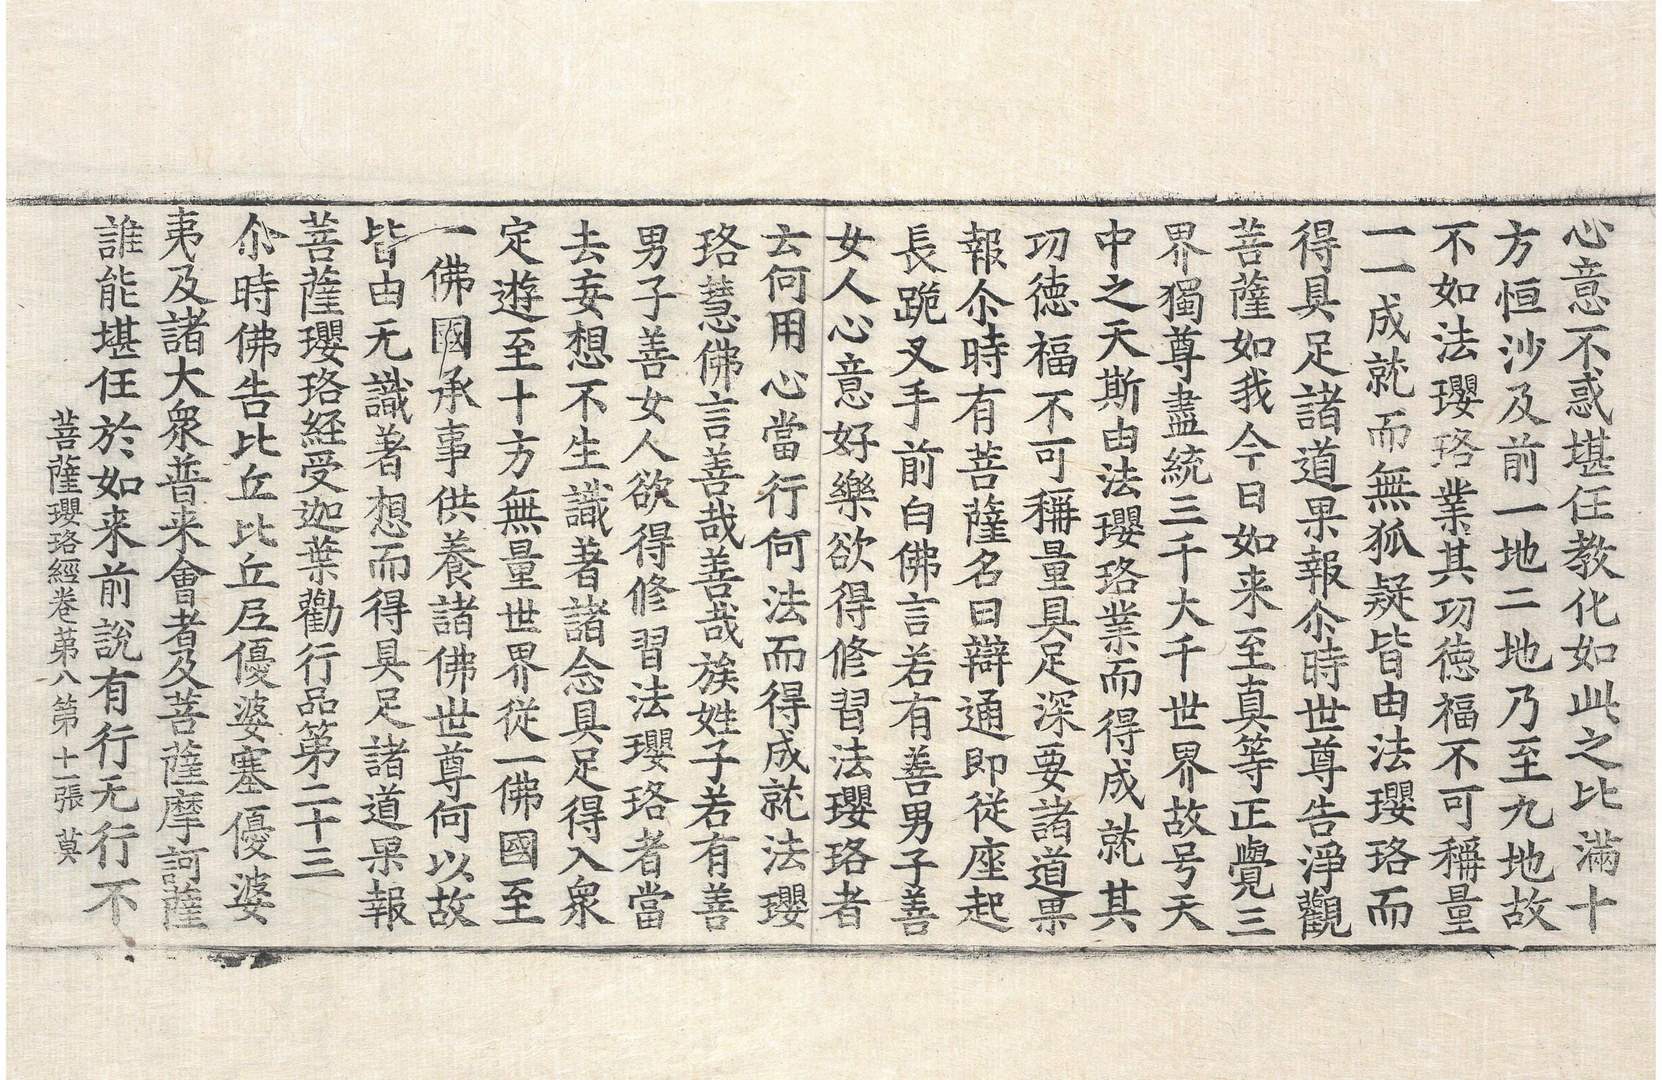 心意不惑堪任教化如此之比滿十
方恒沙及前一地二地乃至九地故
不如法瓔珞業其功徳福不可稱量
一一成就而無狐疑皆由法瓔珞而
得具足諸道果報尒時世尊告淨觀
菩薩如我今日如来至真等正覺三
界獨尊盡統三千大千世界故号天
中之天斯由法瓔珞業而得成就其
功徳福不可稱量具足深要諸道果
報尒時有菩薩名曰辯通即從座起
長跪叉手前白佛言若有善男子善
女人心意好樂欲得修習法瓔珞者
云何用心當行何法而得成就法瓔
珞慧佛言善哉善哉族姓子若有善
男子善女人欲得修習法瓔珞者當
去妄想不生識著諸念具足得入衆
定遊至十方無量世界從一佛國至
一佛國承事供養諸佛世尊何以故
皆由无識著想而得具足諸道果報
菩薩瓔珞經受迦葉勸行品第二十三
尒時佛告比丘比丘尼優婆塞優婆
夷及諸大衆普来會者及菩薩摩訶薩
誰能堪任於如来前說有行无行不
菩薩瓔珞經卷第八 第十一張 莫